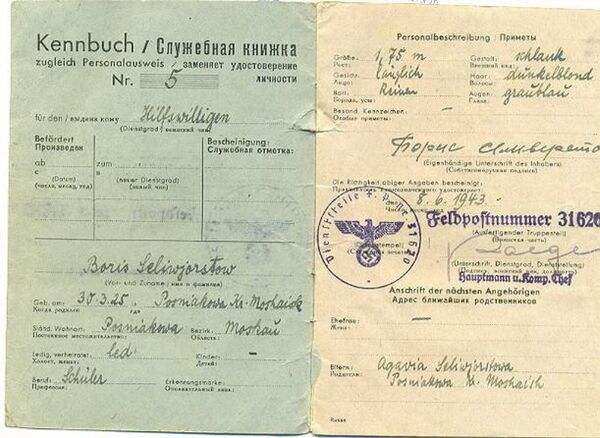 Kennbuch / Служебная книжка
zugleich Personalausweis / заменяет удостоверение
Nr. 5 личности
für den / выдана кому Hilfswilligen
(Dienstgrad / воинский чин)
Befördert
Произведен
Bescheinigung:
Служебная отметка:
ab zum
с в
(Datum) (neuer Dienstgrad)
(число, месяц, год) (новый чин)
Boris Seliwjorstow
(Vor- und Zuname / имя и фамилия)
Geb. am: 30.3.25. Posniakowa Kr. Moshaisk
Когда родился где
Ständ. Wohnort: Posniakowa Bezirk: Moskau
Постоянное местожительство: Область:
Ledig, verheiratet: led Kinder:
Холост, женат: Детей:
Beruf: Schüler Erkennungsmarke:
Профессия: Опознавательный знак:
Personalbeschreibung / Приметы
Größe: 1,75 m Gestalt: schlank
Рост: Внешний вид:
Gesicht: länglich Haar: dunkelblond
Лицо: Волосы:
Bart: Augen: graublau
Борода, усы: Глаза:
Besond. Kennzeichen:
Особые приметы:
Борис
(Eigenhändige Unterschrift des Inhabers)
(Собственноручная подпись)
Die Richtigkeit obiger Angaben bescheinigt:
8.6.1943.
Dienststelle F. 31620
Feldpostnummer 31620
(Ausfertigender Truppenteil)
(Воинская часть)
(Unterschrift, Dienstgrad, Dienststellung)
Hauptmann u. Komp. Chef
Anschrift der nächsten Angehörigen
Адрес ближайших родственников
Ehefrau:
Жена:
Eltern: Agavia Seliwjorstowa
Родители: Posniakowa Kr. Moshaisk